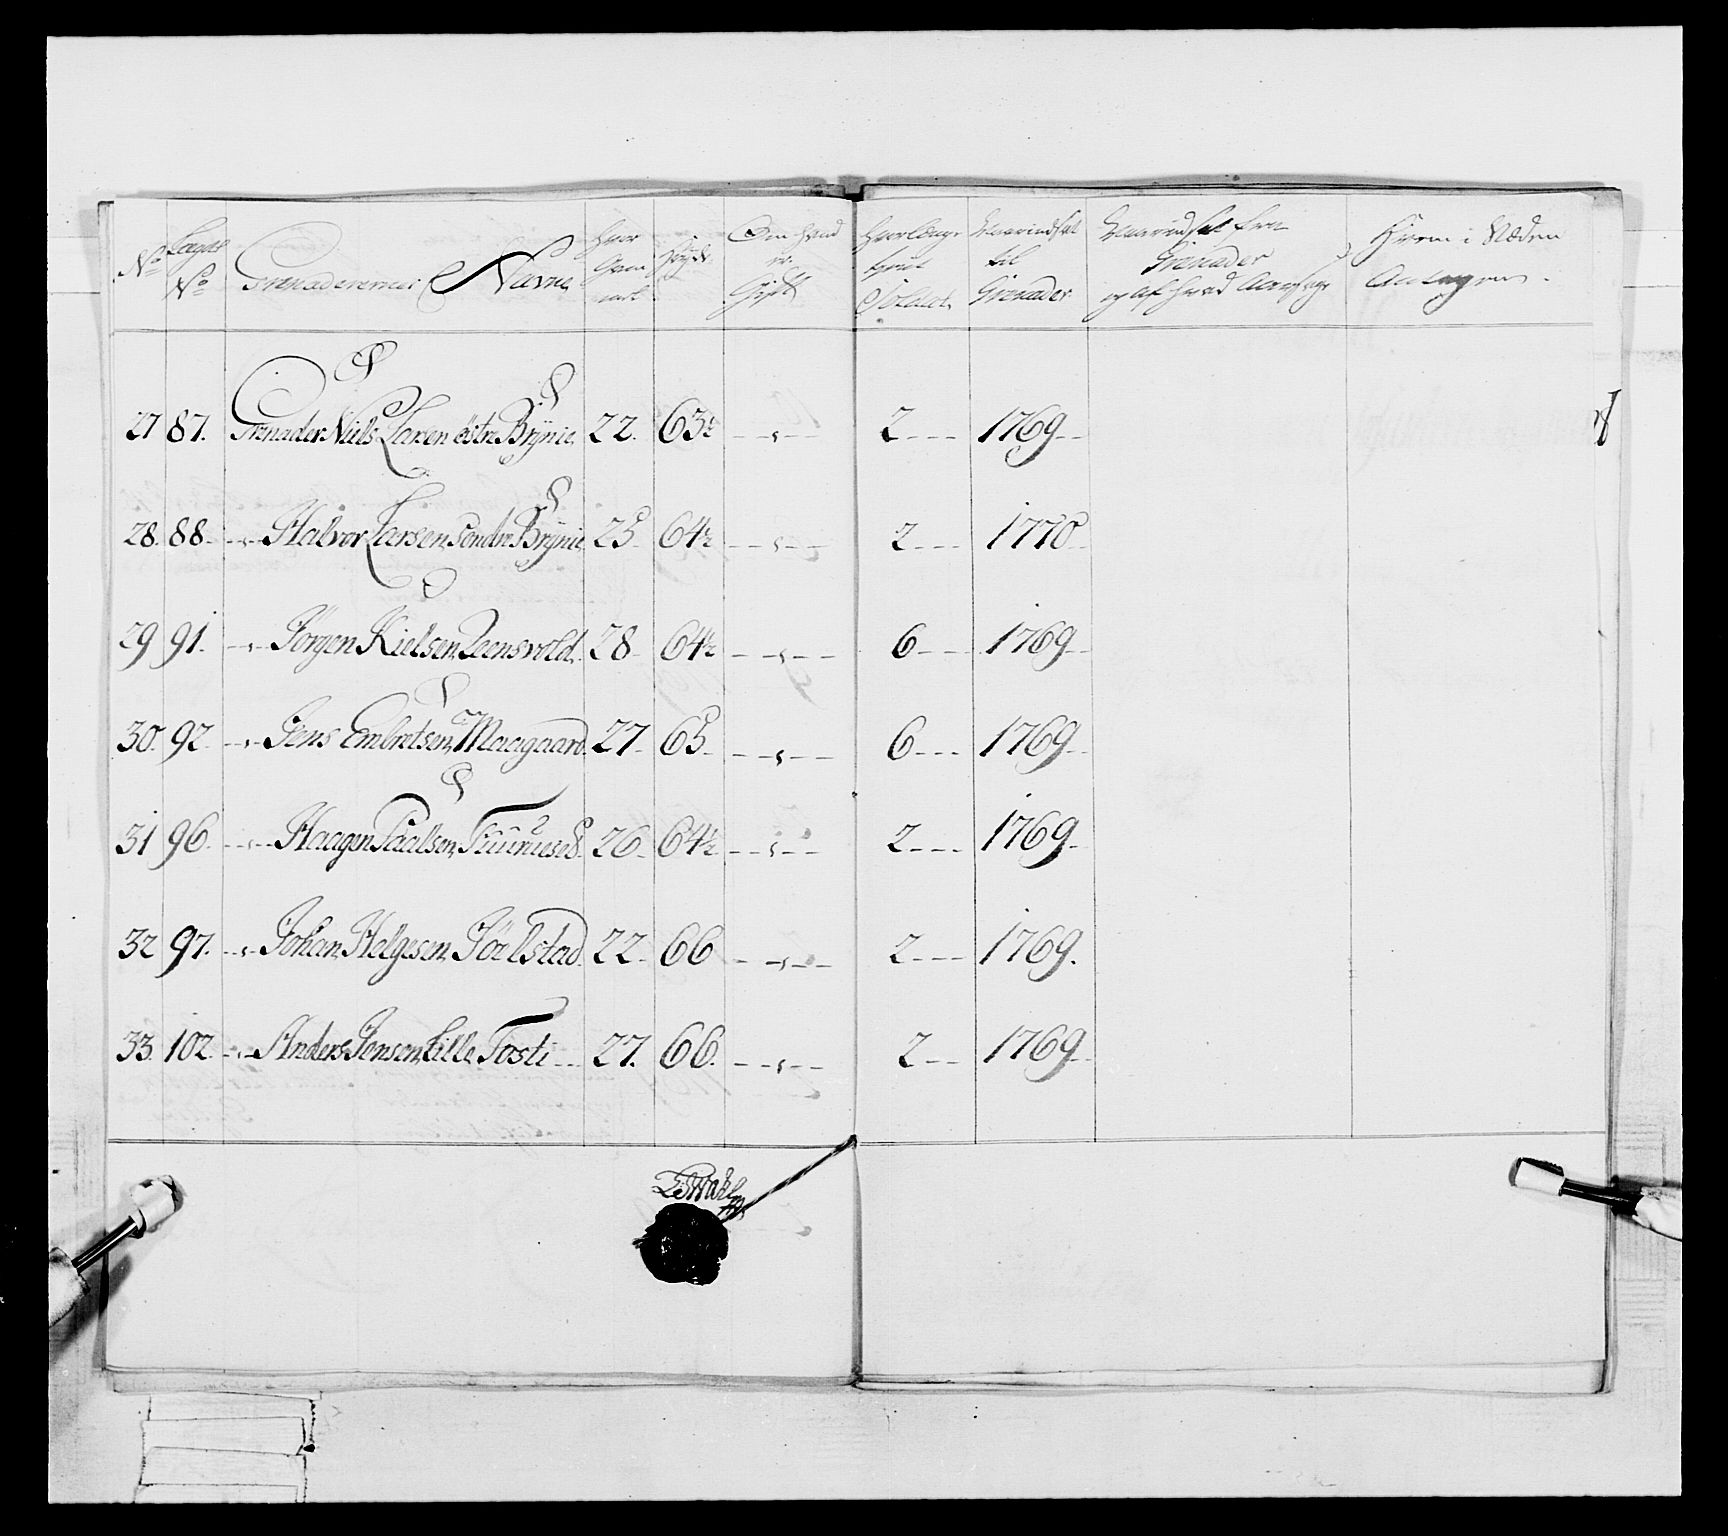 No Lægds No Grenaderernes Navne Hvor Gammel Høyde Om hand er Gift Hvorlænge tient Soldat til Grenader Grenader og af hvad Aarsag Hvem i Stæden Antagen
27 87. Grenader Niels Larsen östre Brÿnie. 22. 63½ - - " - - 2 - - - 1769 - -
28. 88. - " - Halvor Larsen, söndre Brÿnie 25. 64½ - - " - - 2 - - - 1770 - -
29 91. - " - Jörgen Kielsen, Leensvold. 28. 64½ - - " - - 6 - - - 1769 - -
30. 92. - " - Jens Embretsen, Maagaard. 27. 65. - - " - - 6 - - - 1769 - -
31 96. - " - Haagen Paalsen, 26. 64½ - - " - - 2 - - - 1769. -
32 97. - " - Johan Helgesen, 22. 66 - - " - - 2 - - - 1769.
33. 102. - " - Anders Jensen, Lille Tosti - - 27. 66. - - " - - 2 - - 1769 - -